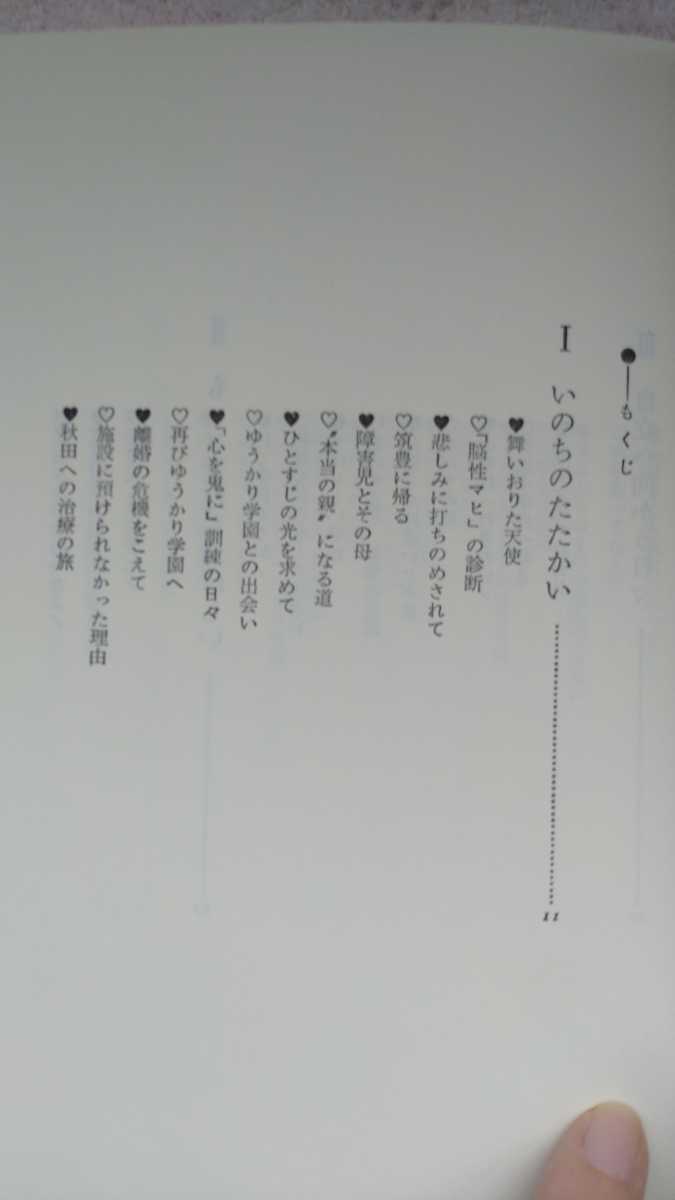 ●―もくじ
I いのちのたたかい……………11
♥舞いおりた天使
♡「脳性マヒ」の診断
♥悲しみに打ちのめされて
♡筑豊に帰る
♥障害児とその母
♡〝本当の親〟になる道
♥ひとすじの光を求めて
♡ゆうかり学園との出会い
♥「心を鬼に」訓練の日々
♡再びゆうかり学園へ
♥離婚の危機をこえて
♡施設に預けられなかった理由
♥秋田への治療の旅